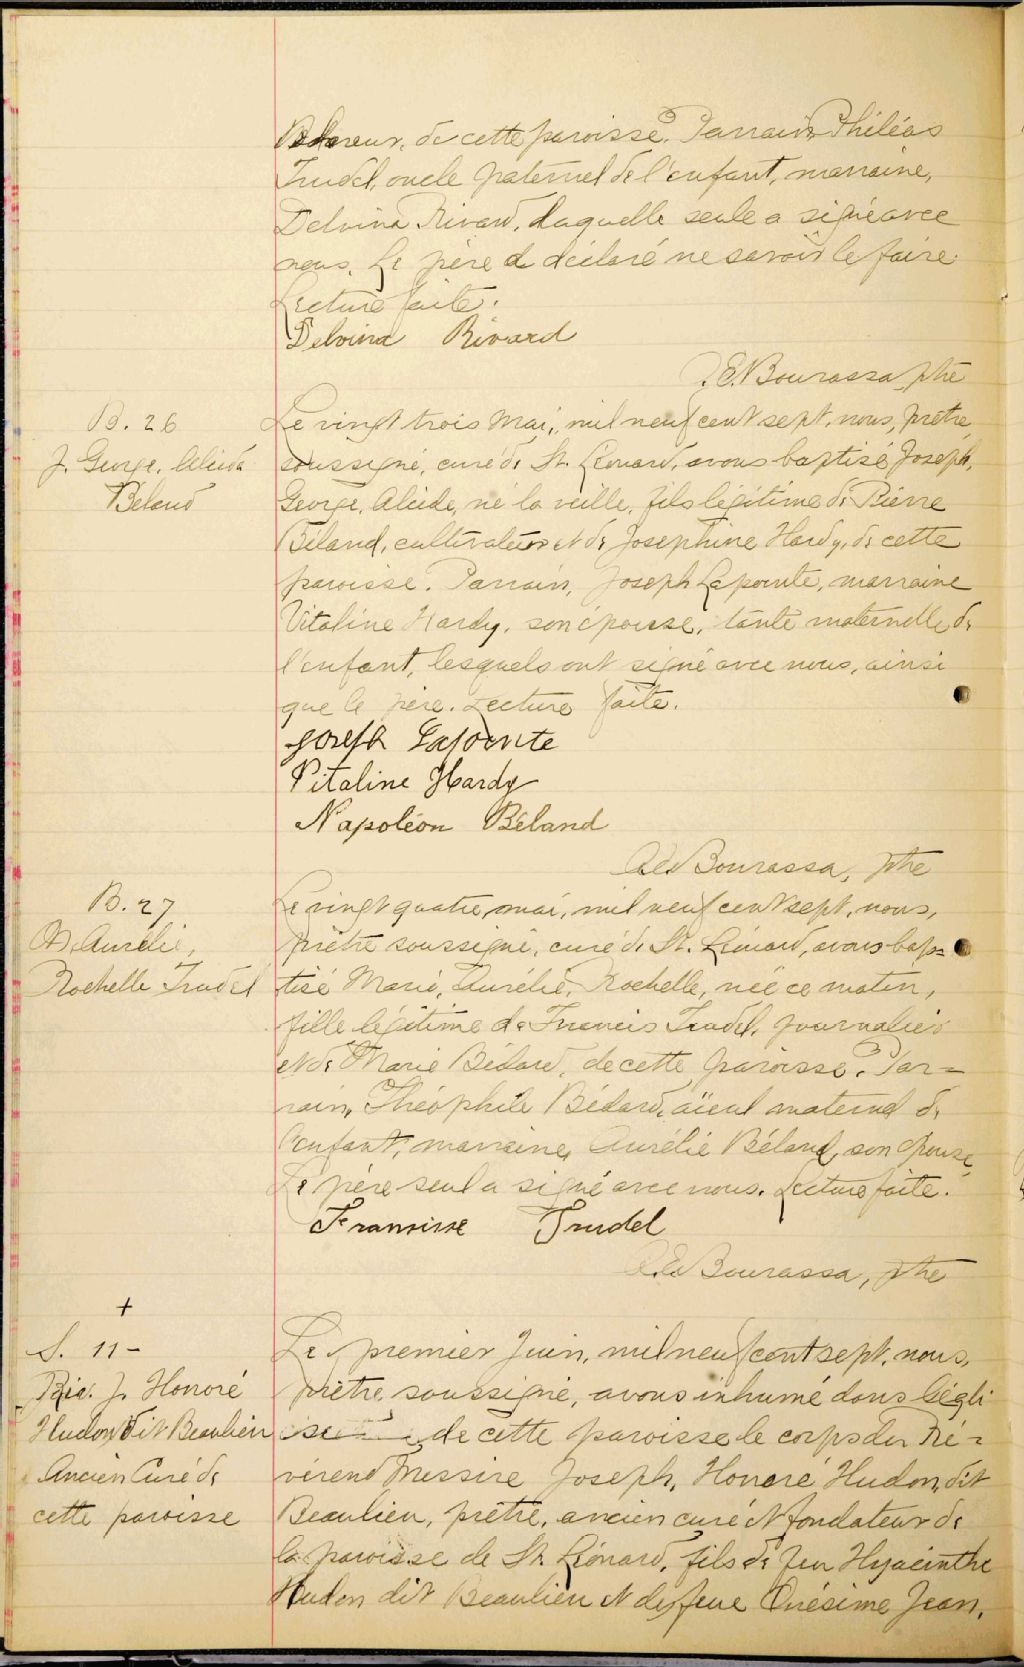 de cette paroisse. Parrain, Philéas
Trudel, oncle paternel de l'enfant, marraine,
Delvina Rivard, laquelle seule a signé avec
nous. Le père a déclaré ne savoir le faire.
Lecture faite.
Delvina Rivard
E. Bourassa, ptre
B. 26
J. George, Alcide
Béland
Le vingt trois Mai, mil neuf cent sept, nous, prêtre
soussigné, curé de St. Léonard, avons baptisé Joseph,
George, Alcide, né la veille, fils légitime de Pierre
Béland, cultivateur et de Josephine Hardy, de cette
paroisse. Parrain, Joseph Lapointe, marraine
Vitaline Hardy, son épouse, tante maternelle de
l'enfant, lesquels ont signé avec nous, ainsi
que le père. Lecture faite.
Joseph Lapointe
Vitaline Hardy
Napoléon Béland
Bourassa, ptre
B. 27
M. Aurélie,
Rochelle Trudel
Le vingt quatre mai, mil neuf cent sept, nous,
prêtre soussigné, curé de St. Léonard, avons bap=
tisé Marie, Aurélie, Rochelle, née ce matin,
fille légitime de Francis Trudel, journalier
et de Marie Bédard, de cette paroisse. Par=
rain, Théophile Bédard, aïeul maternel de
l'enfant, marraine, Aurélie Béland, son épouse.
Le père seul a signé avec nous. Lecture faite.
Fransisse Trudel
E. Bourassa, ptre
+
S. 11-
Rév. J. Honoré
Hudon dit Beaulieu
Ancien Curé de
cette paroisse
Le premier Juin, mil neuf cent sept, nous,
prêtre soussigné, avons inhumé dans l'égli
se de cette paroisse le corps du Ré=
vérend Messire Joseph, Honoré Hudon, dit
Beaulieu, prêtre, ancien curé et fondateur de
la paroisse de St. Léonard, fils de feu Hyacinthe
Hudon dit Beaulieu et de feue Onésime Jean,